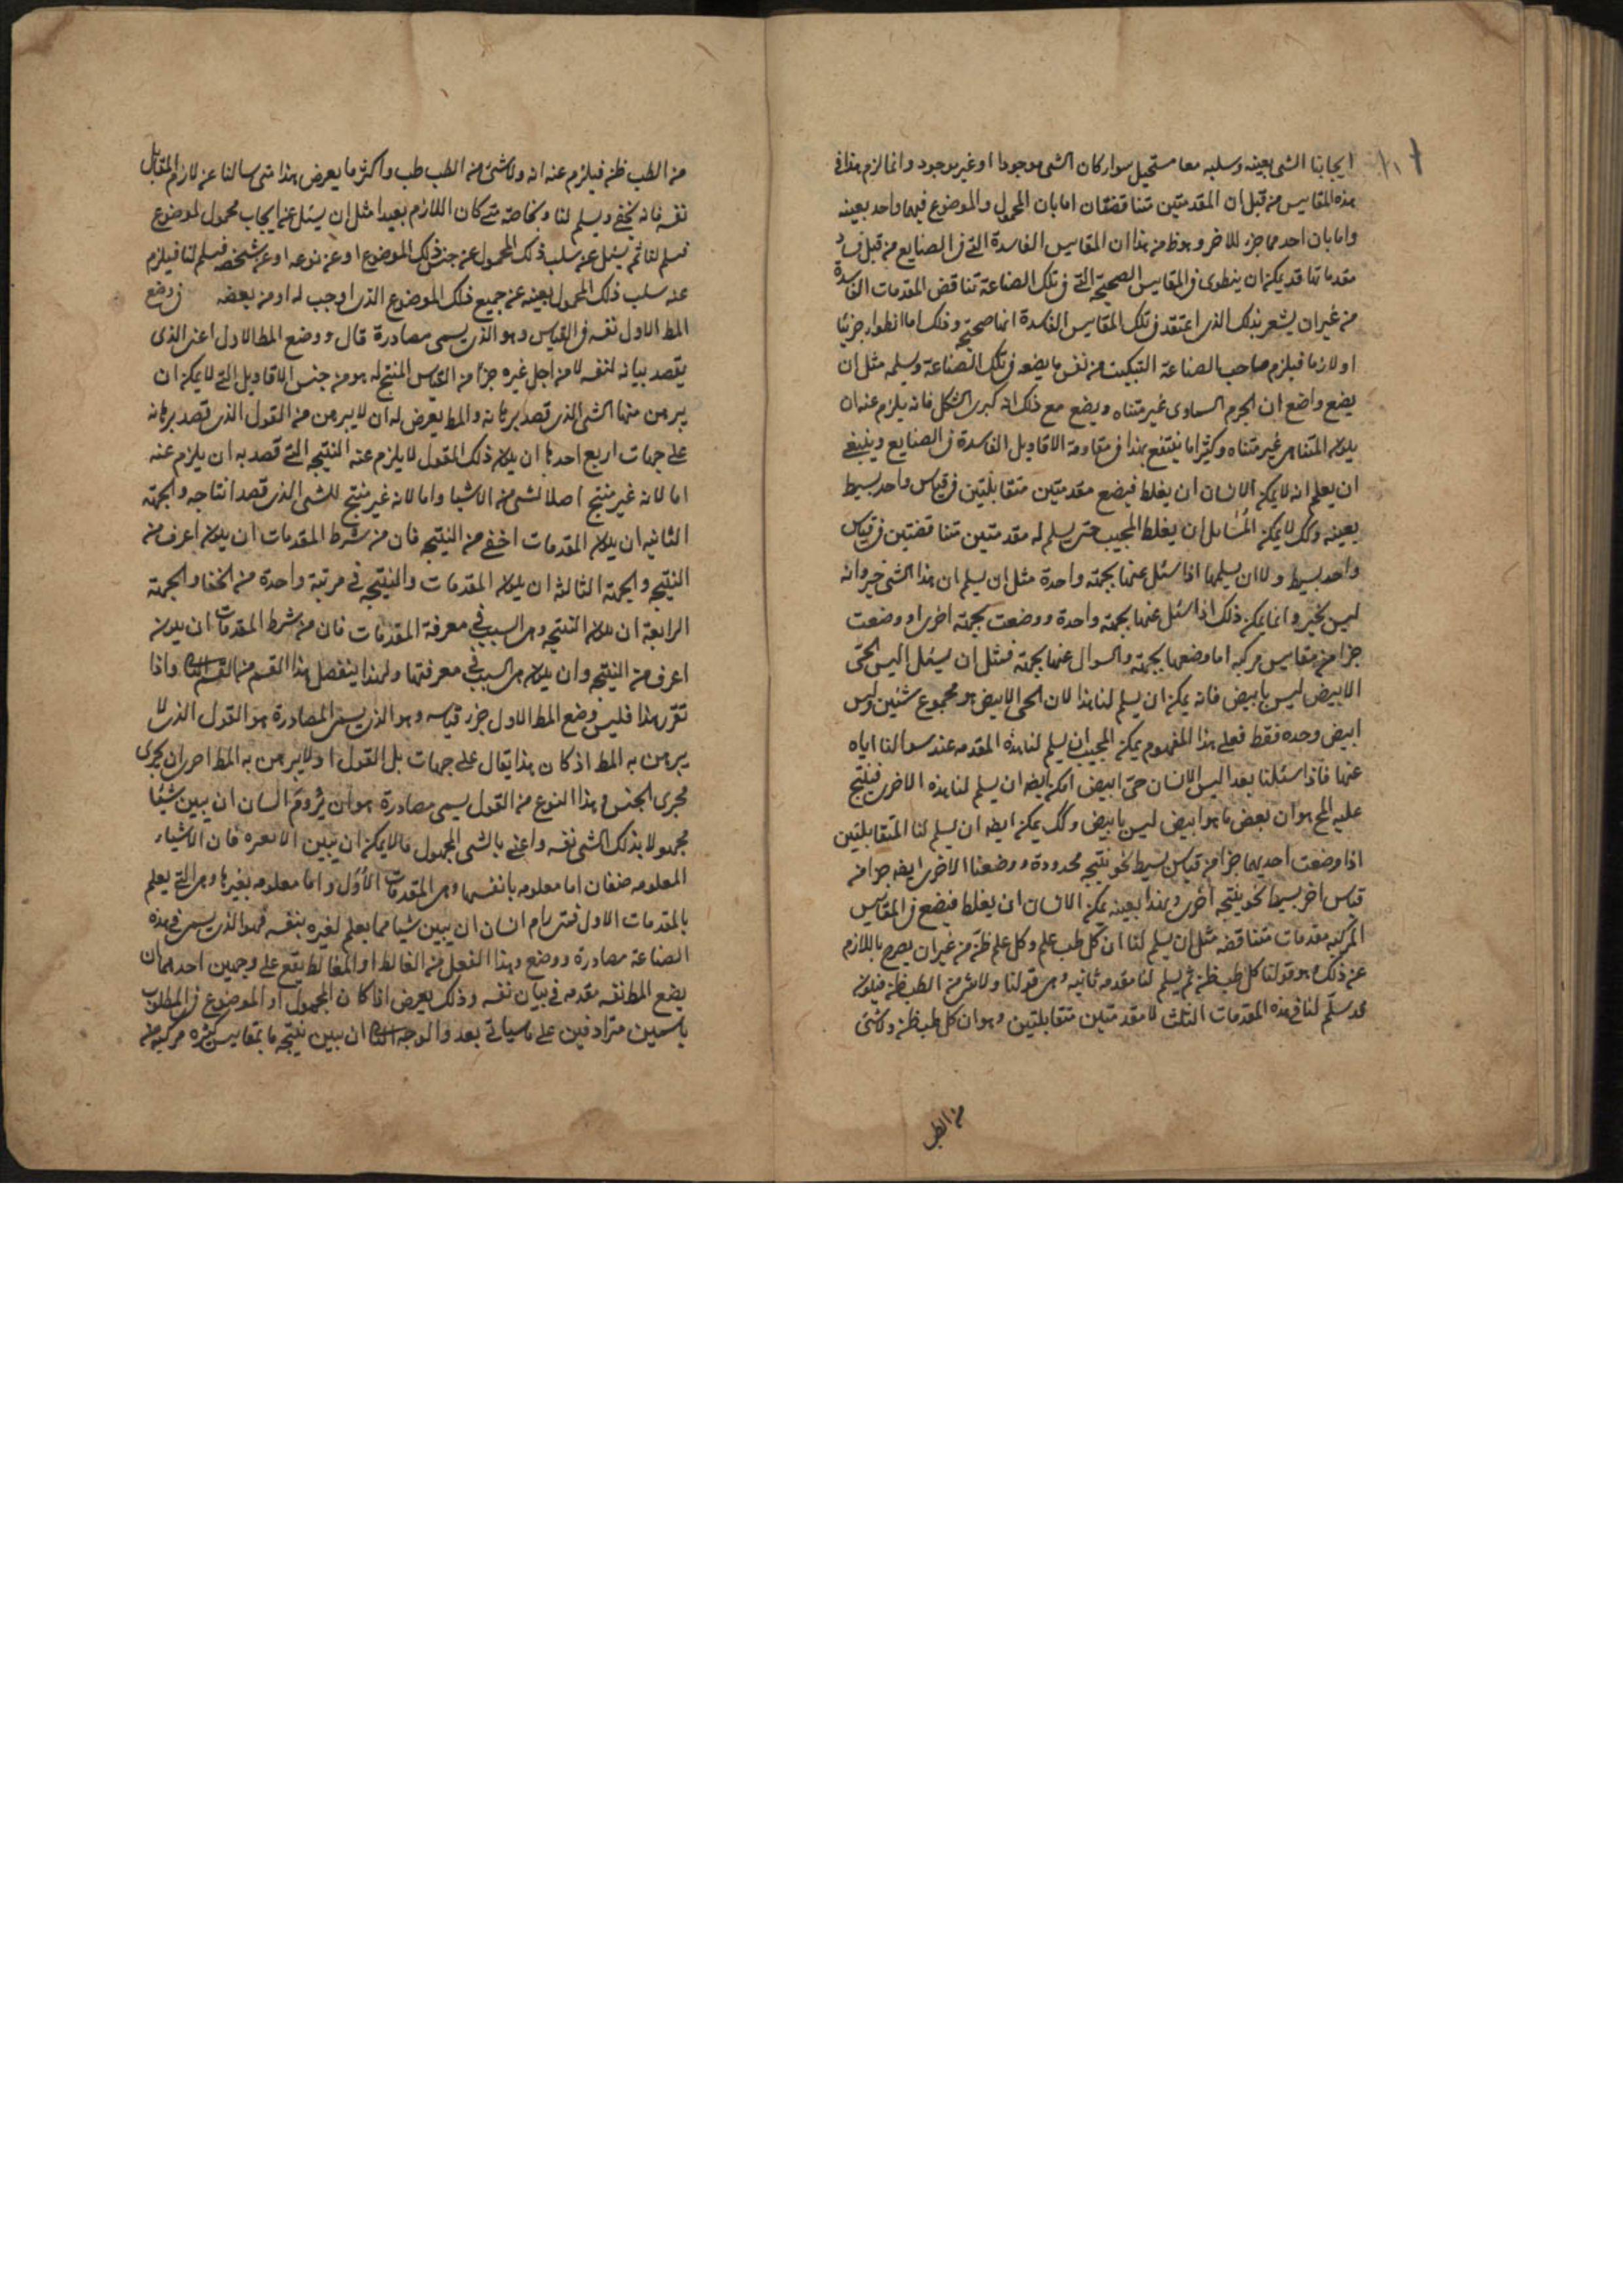 ايجابنا الشى بعينه وسلبه معا مستحيل سواء كان الشى موجودا او غير موجود وانما لزم هذا فى
هذه المقاييس من قبل ان المقدمتين تتناقضان اما بان المحمول والموضوع فيهما واحد بعينه
واما بان احدهما جزء للاخر وهو ظ من هذا ان المقاييس الفاسدة التى فى الصنايع من قبل فساد
مقدماتها قد يمكن ان ينطوى فى المقاييس الصحيحة التى فى تلك الصناعة تناقض المقدمات الفاسدة
من غير ان يشعر بذلك الذى اعتقد فى تلك المقاييس الفاسدة انها صحيحة وذلك اما انطواء جزئيا
او لازما فيلزم صاحب الصناعة التبكيت من نفس ما يضعه فى تلك الصناعة ويسلمه مثل ان
يضع واضع ان الجرم السماوى غير متناه ويضع مع ذلك انه كرى الشكل فانه يلزم عنه ان
يكون المتناهى غير متناه وكثيرا ما ينتفع بهذا فى مقاومة الاقاويل الفاسدة فى الصنايع وينبغى
ان يعلم انه لا يمكن الانسان ان يغلط فيضع مقدمتين متقابلتين فى قياس واحد بسيط
بعينه وكك لا يمكن السايل ان يغلط المجيب حتى يسلم له مقدمتين متناقضتين فى قياس
واحد بسيط ولا ان يسلمها اذا سئل عنها بجهة واحدة مثل ان يسلم ان هذا الشى خير وانه
ليس بخير وانما يمكن ذلك اذا سئل عنها بجهة واحدة ووضعت بجهة اخرى او وضعت
جزا من مقاييس مركبه اما وضعها بجهة والسوال عنها بجهة فمثل ان يسئل اليس الحى
الابيض ليس بابيض فانه يمكن ان يسلم لنا هذا لان الحى الابيض هو مجموع شئين وليس
ابيض وحده فقط فعلى هذا المفهوم يمكن المجيب ان يسلم لنا هذه المقدمه عند سوالنا اياه
عنها فاذا سئلنا بعد اليس الانسان حى ابيض امكن ايضه ان يسلم لنا هذه الاخرى فينتج
عليه المح هو ان بعض ما هو ابيض ليس بابيض وكك يمكن ايضه ان يسلم لنا المتقابلتين
اذا وضعت احديهما جزا من قياس بسيط نحو نتيجه محدودة ووضعنا الاخرى ايضه جزا من
قياس اخر بسيط نحو نتيجه اخرى وبهذا بعينه يمكن الانسان ان يغلط فيضع فى المقاييس
المركبه مقدمات متناقضه مثل ان يسلم لنا ان كل طب علم وكل علم ظن من غير ان يصرح باللازم
عن ذلك وهو قولنا كل طب ظن ثم يسلم لنا مقدمه ثانيه وهى قولنا ولا شى من الطب ظن فيكون
قد سلم لنا فى هذه المقدمات الثلث لا مقدمتين متقابلتين وهو ان كل طب ظن ولا شى
من الطب
من الطب ظن فيلزم عنه انه ولا شى من الطب طب واكثر ما يعرض هذا متى سالنا عن لازم المقابل
نفسه فانه يخفى ويسلم لنا وبخاصة متى كان اللازم بعيدا مثل ان يسئل عن ايجاب محمول لموضوع
فيسلم لنا ثم يسئل عن سلب ذلك المحمول عن جنس ذلك الموضوع او عن نوعه او عن شخصه فيسلم لنا فيلزم
عنه سلب ذلك المحمول بعينه عن جميع ذلك الموضوع الذى اوجب له او من بعضه فى وضع
المط الاول نفسه فى القياس وهو الذى يسمى مصادرة قال ووضع المط الاول اعنى الذى
يقصد بيانه لنفسه لا من اجل غيره جزا من القياس المنتج له هو من جنس الاقاويل التى لا يمكن ان
يبرهن منها الشى الذى قصد برهانه والمط يعرض له ان لا يبرهن من القول الذى قصد برهانه
على جهات اربع احدها ان يكون ذلك القول لا يلزم عنه النتيجه التى قصد به ان يلزم عنه
اما لانه غير منتج اصلا لشى من الاشيا واما لانه غير منتج للشى الذى قصد انتاجه والجهة
الثانيه ان يكون المقدمات اخفى من النتيجه فان من شرط المقدمات ان يكون اعرف من
النتيجه والجهة الثالثه ان يكون المقدمات والنتيجه فى مرتبة واحدة من الخفا والجهة
الرابعة ان يكون النتيجه وهى السبب فى معرفة المقدمات فان من شرط المقدمات ان يكون
اعرف من النتيجه وان يكون هى السبب فى معرفتها ولهذا ينفصل هذا القسم من القسم الثالث واذا
تقرر هذا فليس وضع المط الاول جزء قياسه وهو الذى يسمى المصادرة هو القول الذى لا
يبرهن به المط اذ كان هذا يقال على جهات بل القول اولا يبرهن به المط احرى ان يجرى
مجرى الجنس وهذا النوع من القول يسمى مصادرة هو ان يروم انسان ان يبين شيئا
مجهولا بذلك الشى نفسه واعنى بالشى المجهول ما لا يمكن ان يتبين الا بغيره فان الاشياء
المعلومه صنفان اما معلومه بانفسها وهى المقدمات الاُوَل واما معلومه بغيرها وهى التى يعلم
بالمقدمات الاول فمتى رام انسان ان يبين شيا مما يعلم لغيره بنفسه فهو الذى يسمى فى هذه
الصناعة مصادرة ووضع وهذا الفعل من الغالط او المغالط يقع على وجهين احدهما ان
يضع المط نفسه مقدمه فى بيان نفسه وذلك يعرض اذا كان المحمول او الموضوع فى المطلوب
باسمين مترادفين على ما سياتى بعد والوجه الثانى ان يبين نتيجه ما بمقاييس كثيره مركبه من